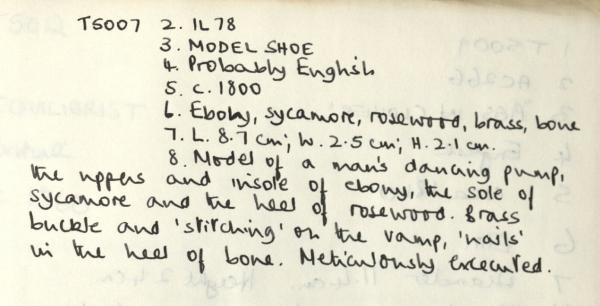 TS007 2. IL 78
3. MODEL SHOE
4. Probably English
5. c. 1800
6. Ebony, sycamore, rosewood, brass, bone
7. L. 8.7 cm; W. 2.5 cm; H. 2.1 cm.
8. Model of a man's dancing pump,
the uppers and insole of ebony, the sole of
sycamore and the heel of rosewood. Brass
buckle and 'stitching' on the vamp, 'nails'
in the heel of bone. Meticulously executed.